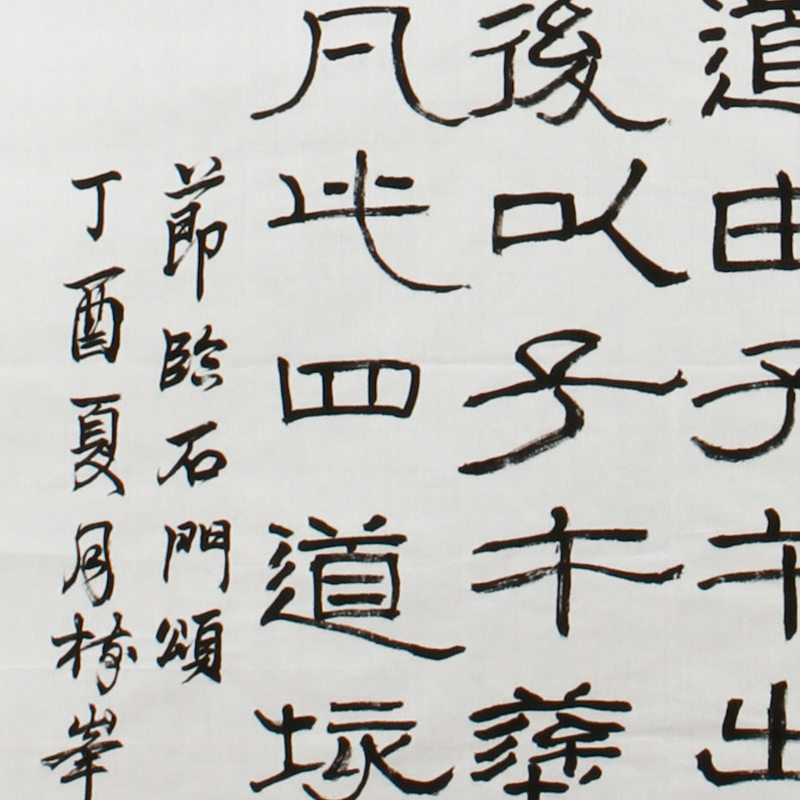 道由子午出
後以子午塗
凡此四道垓
節臨石門頌
丁酉夏月峯